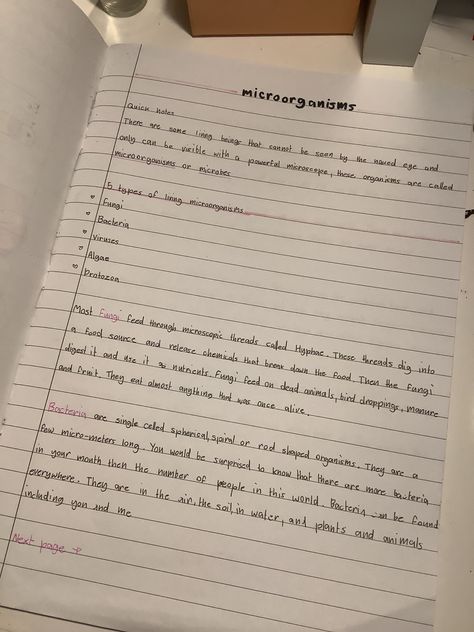 microorganisms
Quick notes
There are some living beings that cannot be seen by the naked eye and
only can be visible with a powerful microscope, these organisms are called
microorganisms or microbes
5 types of living microorganisms
Fungi
Bacteria
Viruses
Algae
Protozoa
Most Fungi feed through microscopic threads called Hyphae. These threads dig into
a food source and release chemicals that break down the food. Then the fungi
digest it and use it as nutrients. Fungi feed on dead animals, bird droppings, manure
and fruit. They eat almost anything that was once alive.
Bacteria are single celled spherical, spiral or rod shaped organisms. They are a
few micro-meters long. You would be surprised to know that there are more bacteria
in your mouth then the number of people in this world. Bacteria can be found
everywhere. They are in the air, the soil, in water, and plants and animals
including you and me
Next page →